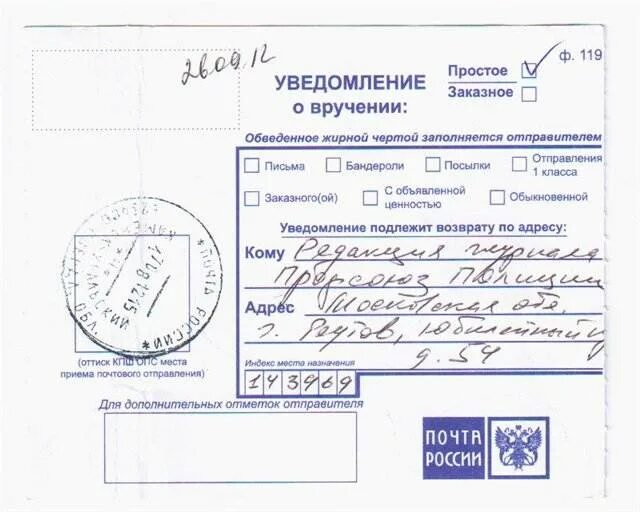 28.09.12
ф. 119
УВЕДОМЛЕНИЕ
о вручении:
Простое
Заказное
Обведенное жирной чертой заполняется отправителем
Письма Бандероли Посылки Отправления 1 класса
Заказного(ой) С объявленной ценностью Обыкновенной
Уведомление подлежит возврату по адресу:
Кому Редакция журнала
Профсоюз Полиции
Адрес Московская обл.
г. Реутов, Юбилейный
д. 54
Индекс места назначения
143969
*ПОЧТА РОССИИ*
(оттиск КПШ ОПС места
приема почтового отправления)
Для дополнительных отметок отправителя
ПОЧТА
РОССИИ